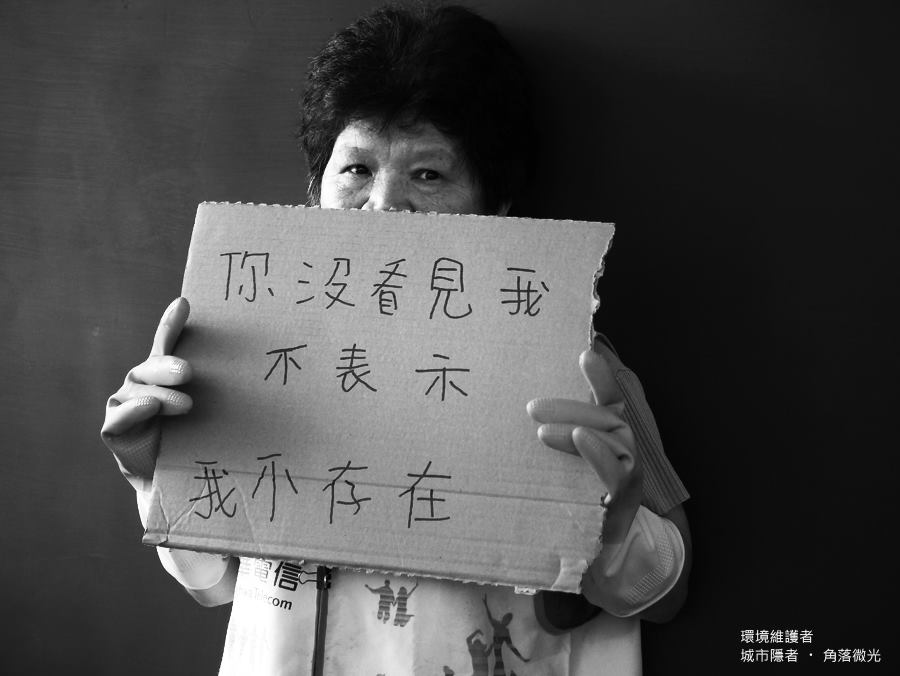 你沒看見我
不表示
我不存在
電信
Telecom
環境維護者
城市隱者 · 角落微光